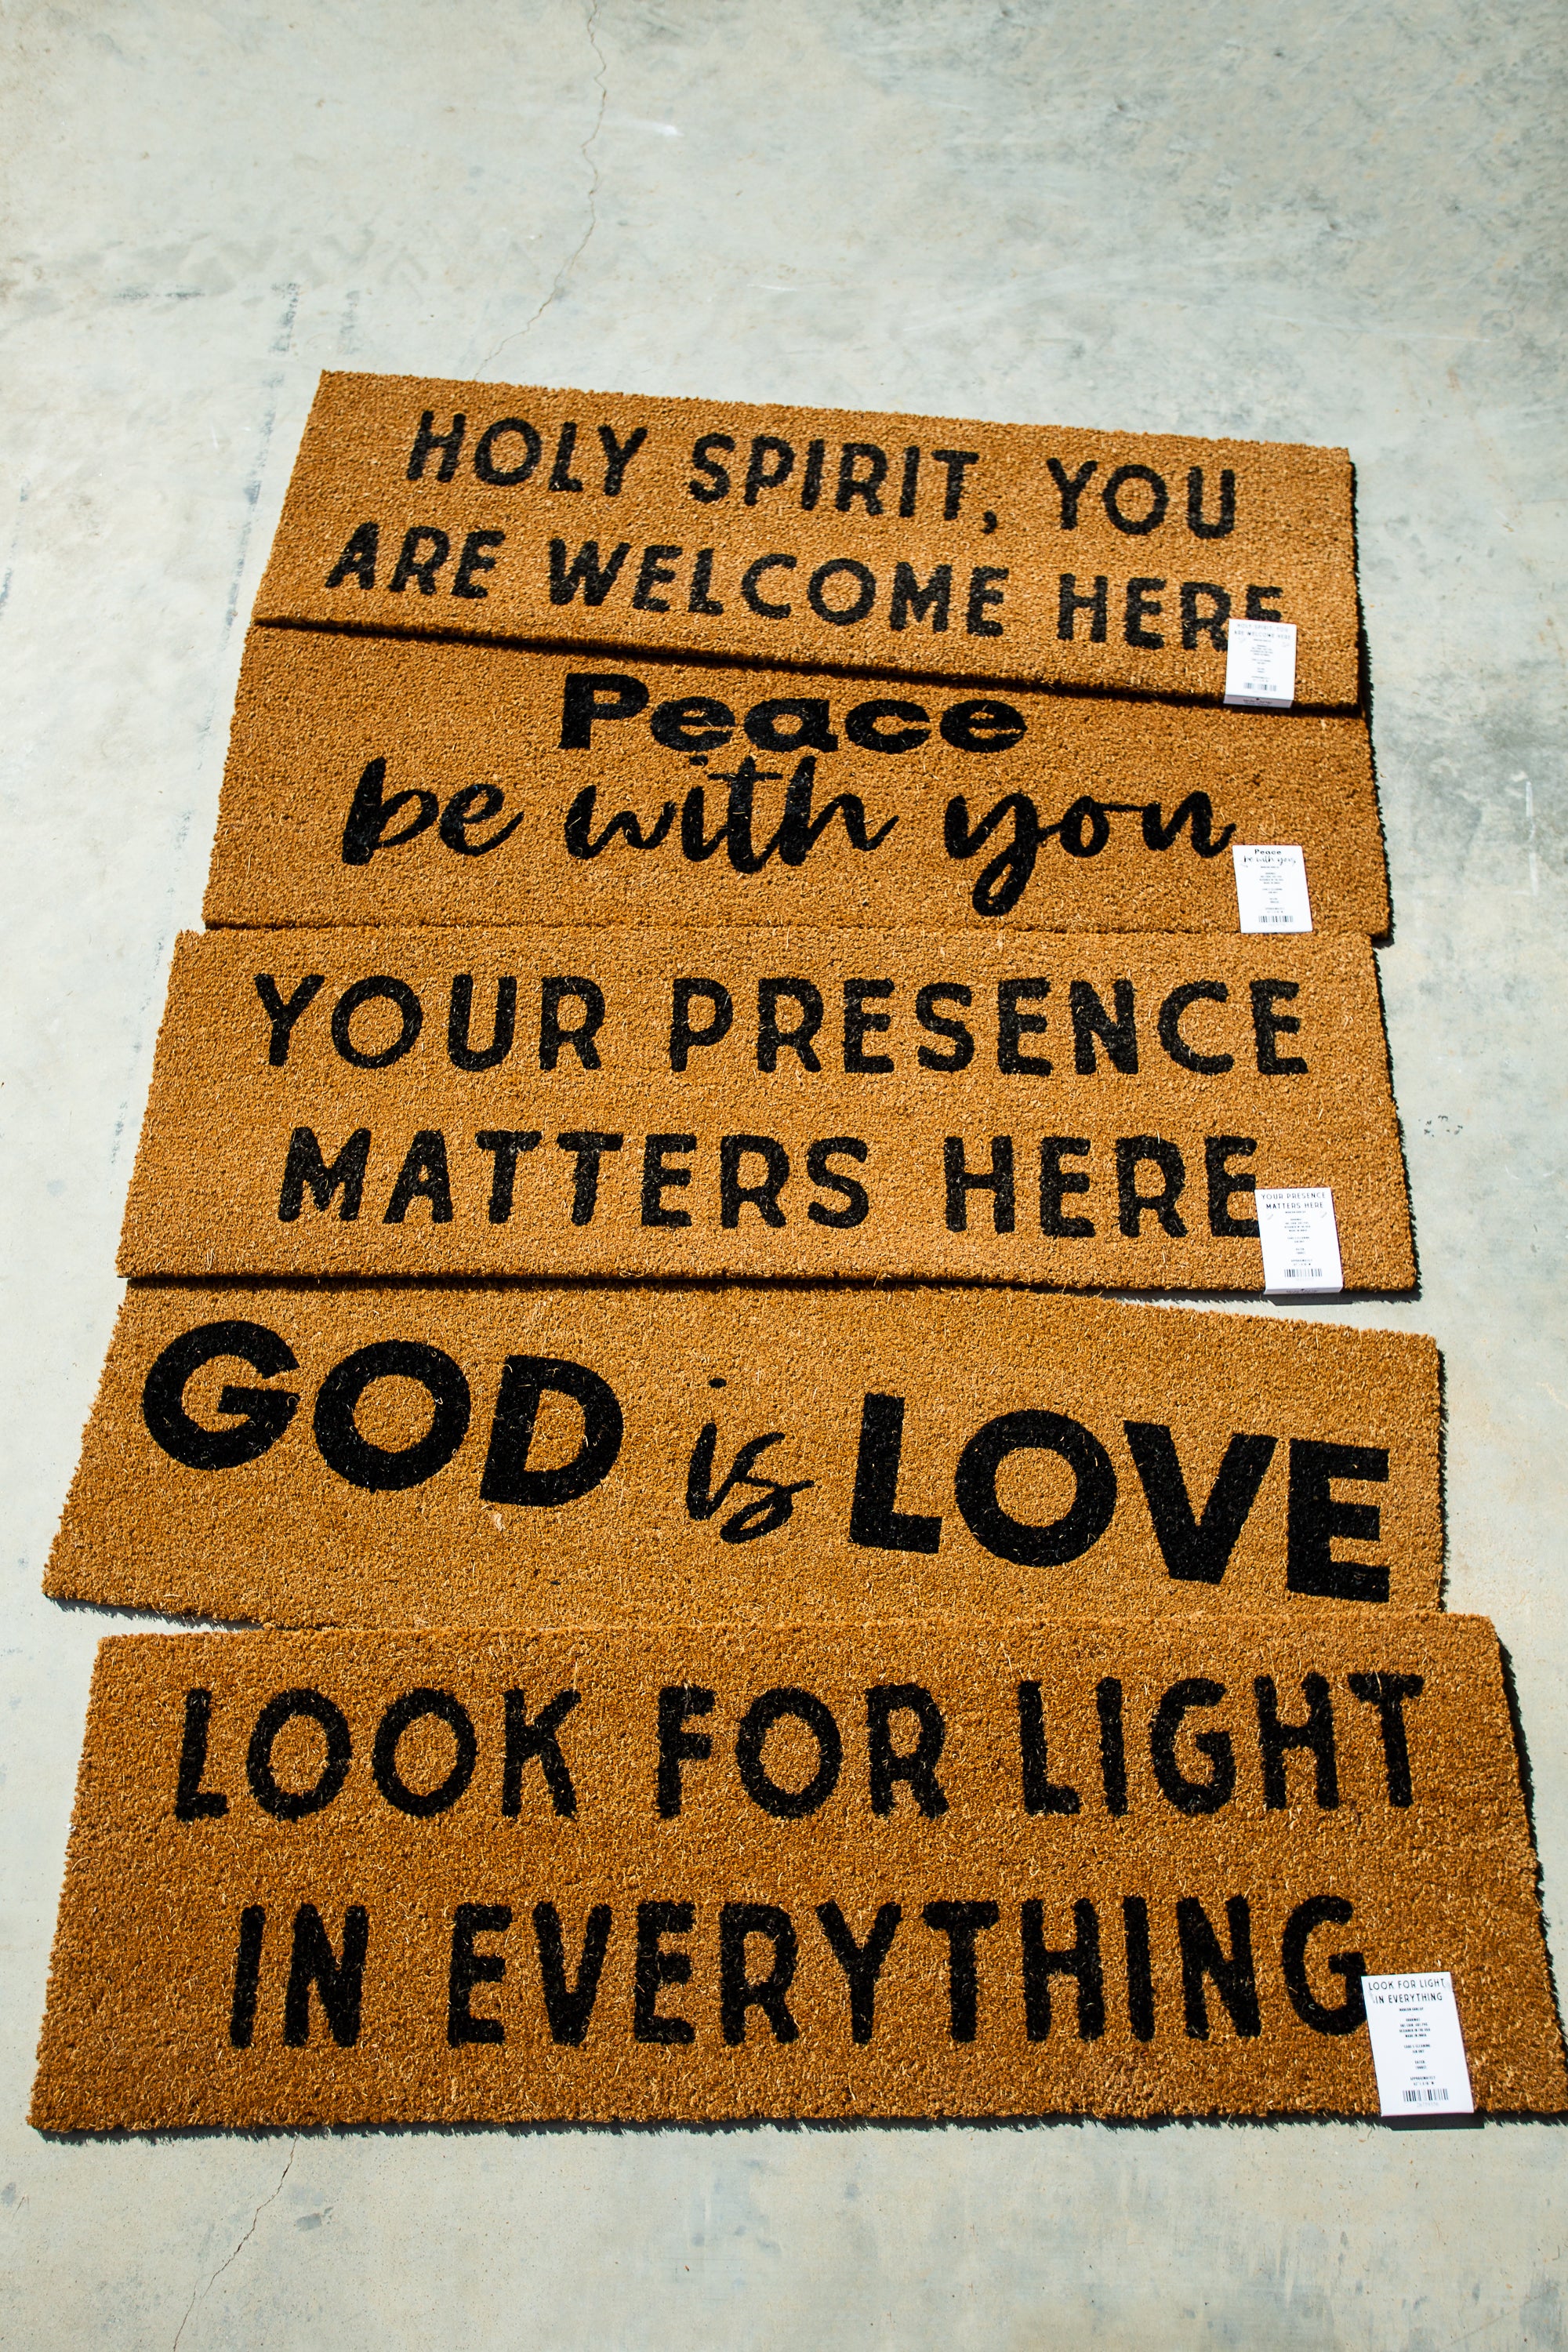 HOLY SPIRIT, YOU
ARE WELCOME HERE
HOLY SPIRIT, YOU
ARE WELCOME HERE
Peace
be with you
Peace
be with you
YOUR PRESENCE
MATTERS HERE
YOUR PRESENCE
MATTERS HERE
GOD is LOVE
LOOK FOR LIGHT
IN EVERYTHING
LOOK FOR LIGHT
IN EVERYTHING